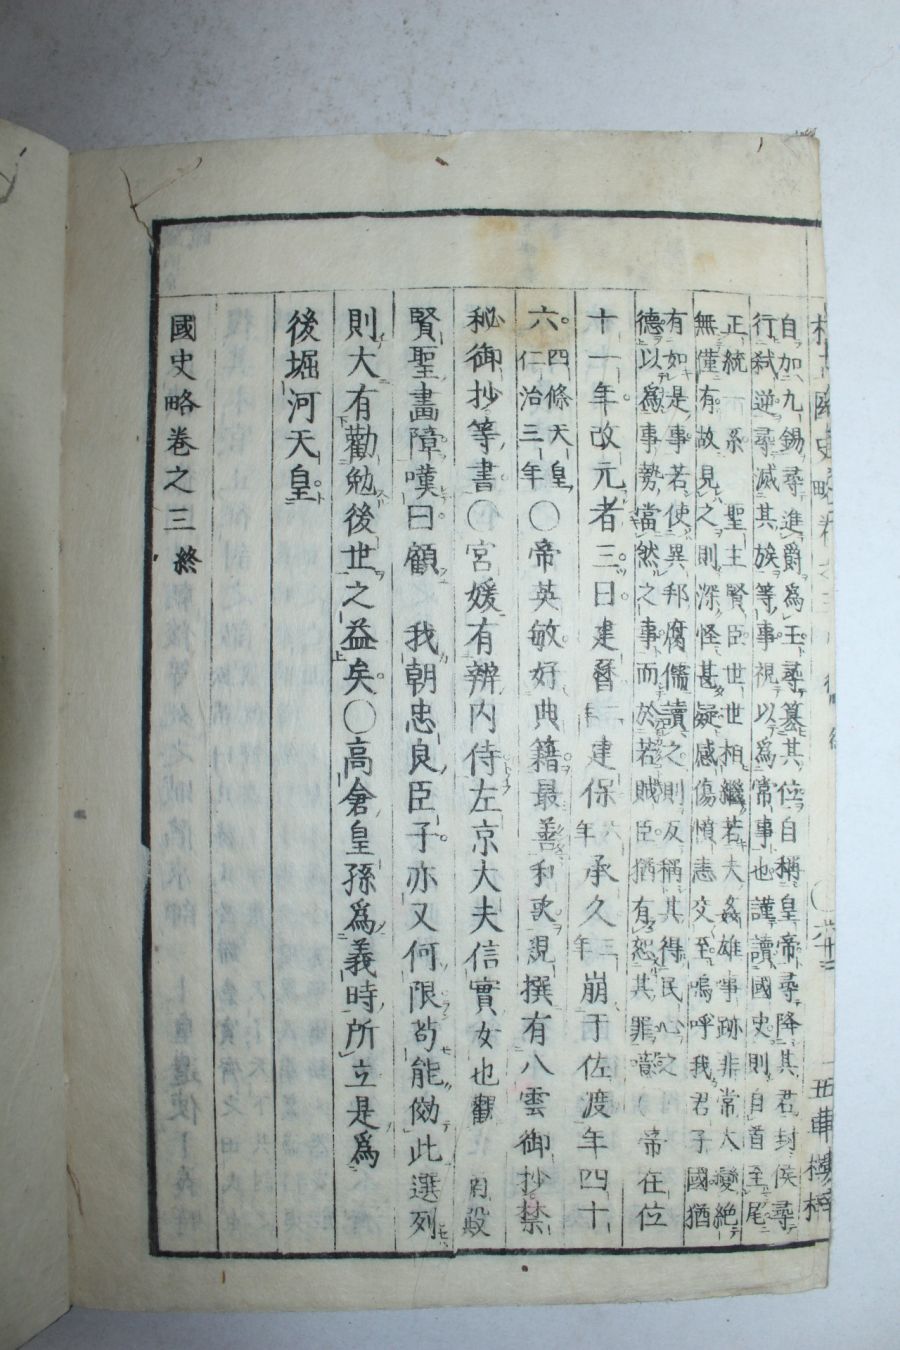 自加九錫尋進爵為王尋簒其位自稱皇帝尋降其君封侯尋
行弒逆尋滅其族等事視以為常事也謹讀國史則自首至尾
正統一系聖主賢臣世世相繼若夫姦雄事跡非常大變絶
無僅有故見之則深怪甚疑感傷憤恚交至嗚呼我君子國猶
有如是事若使異邦腐儒讀之則反稱其得民心之
德以爲事勢當然之事而於若賊臣猶有恕其罪帝在位
十一年改元者三曰建曆二年建保六年承久三年崩于佐渡年四十
六四條天皇仁治三年〇帝英敏好典籍最善和歌親撰有八雲御抄禁
秘御抄等書〇宮媛有辨內侍左京大夫信實女也觀南殿
賢聖畫障嘆曰顧我朝忠良臣子亦又何限苟能傚此選列
則大有勸勉後世之益矣〇高倉皇孫爲義時所立是爲
後堀河天皇
國史略卷之三終